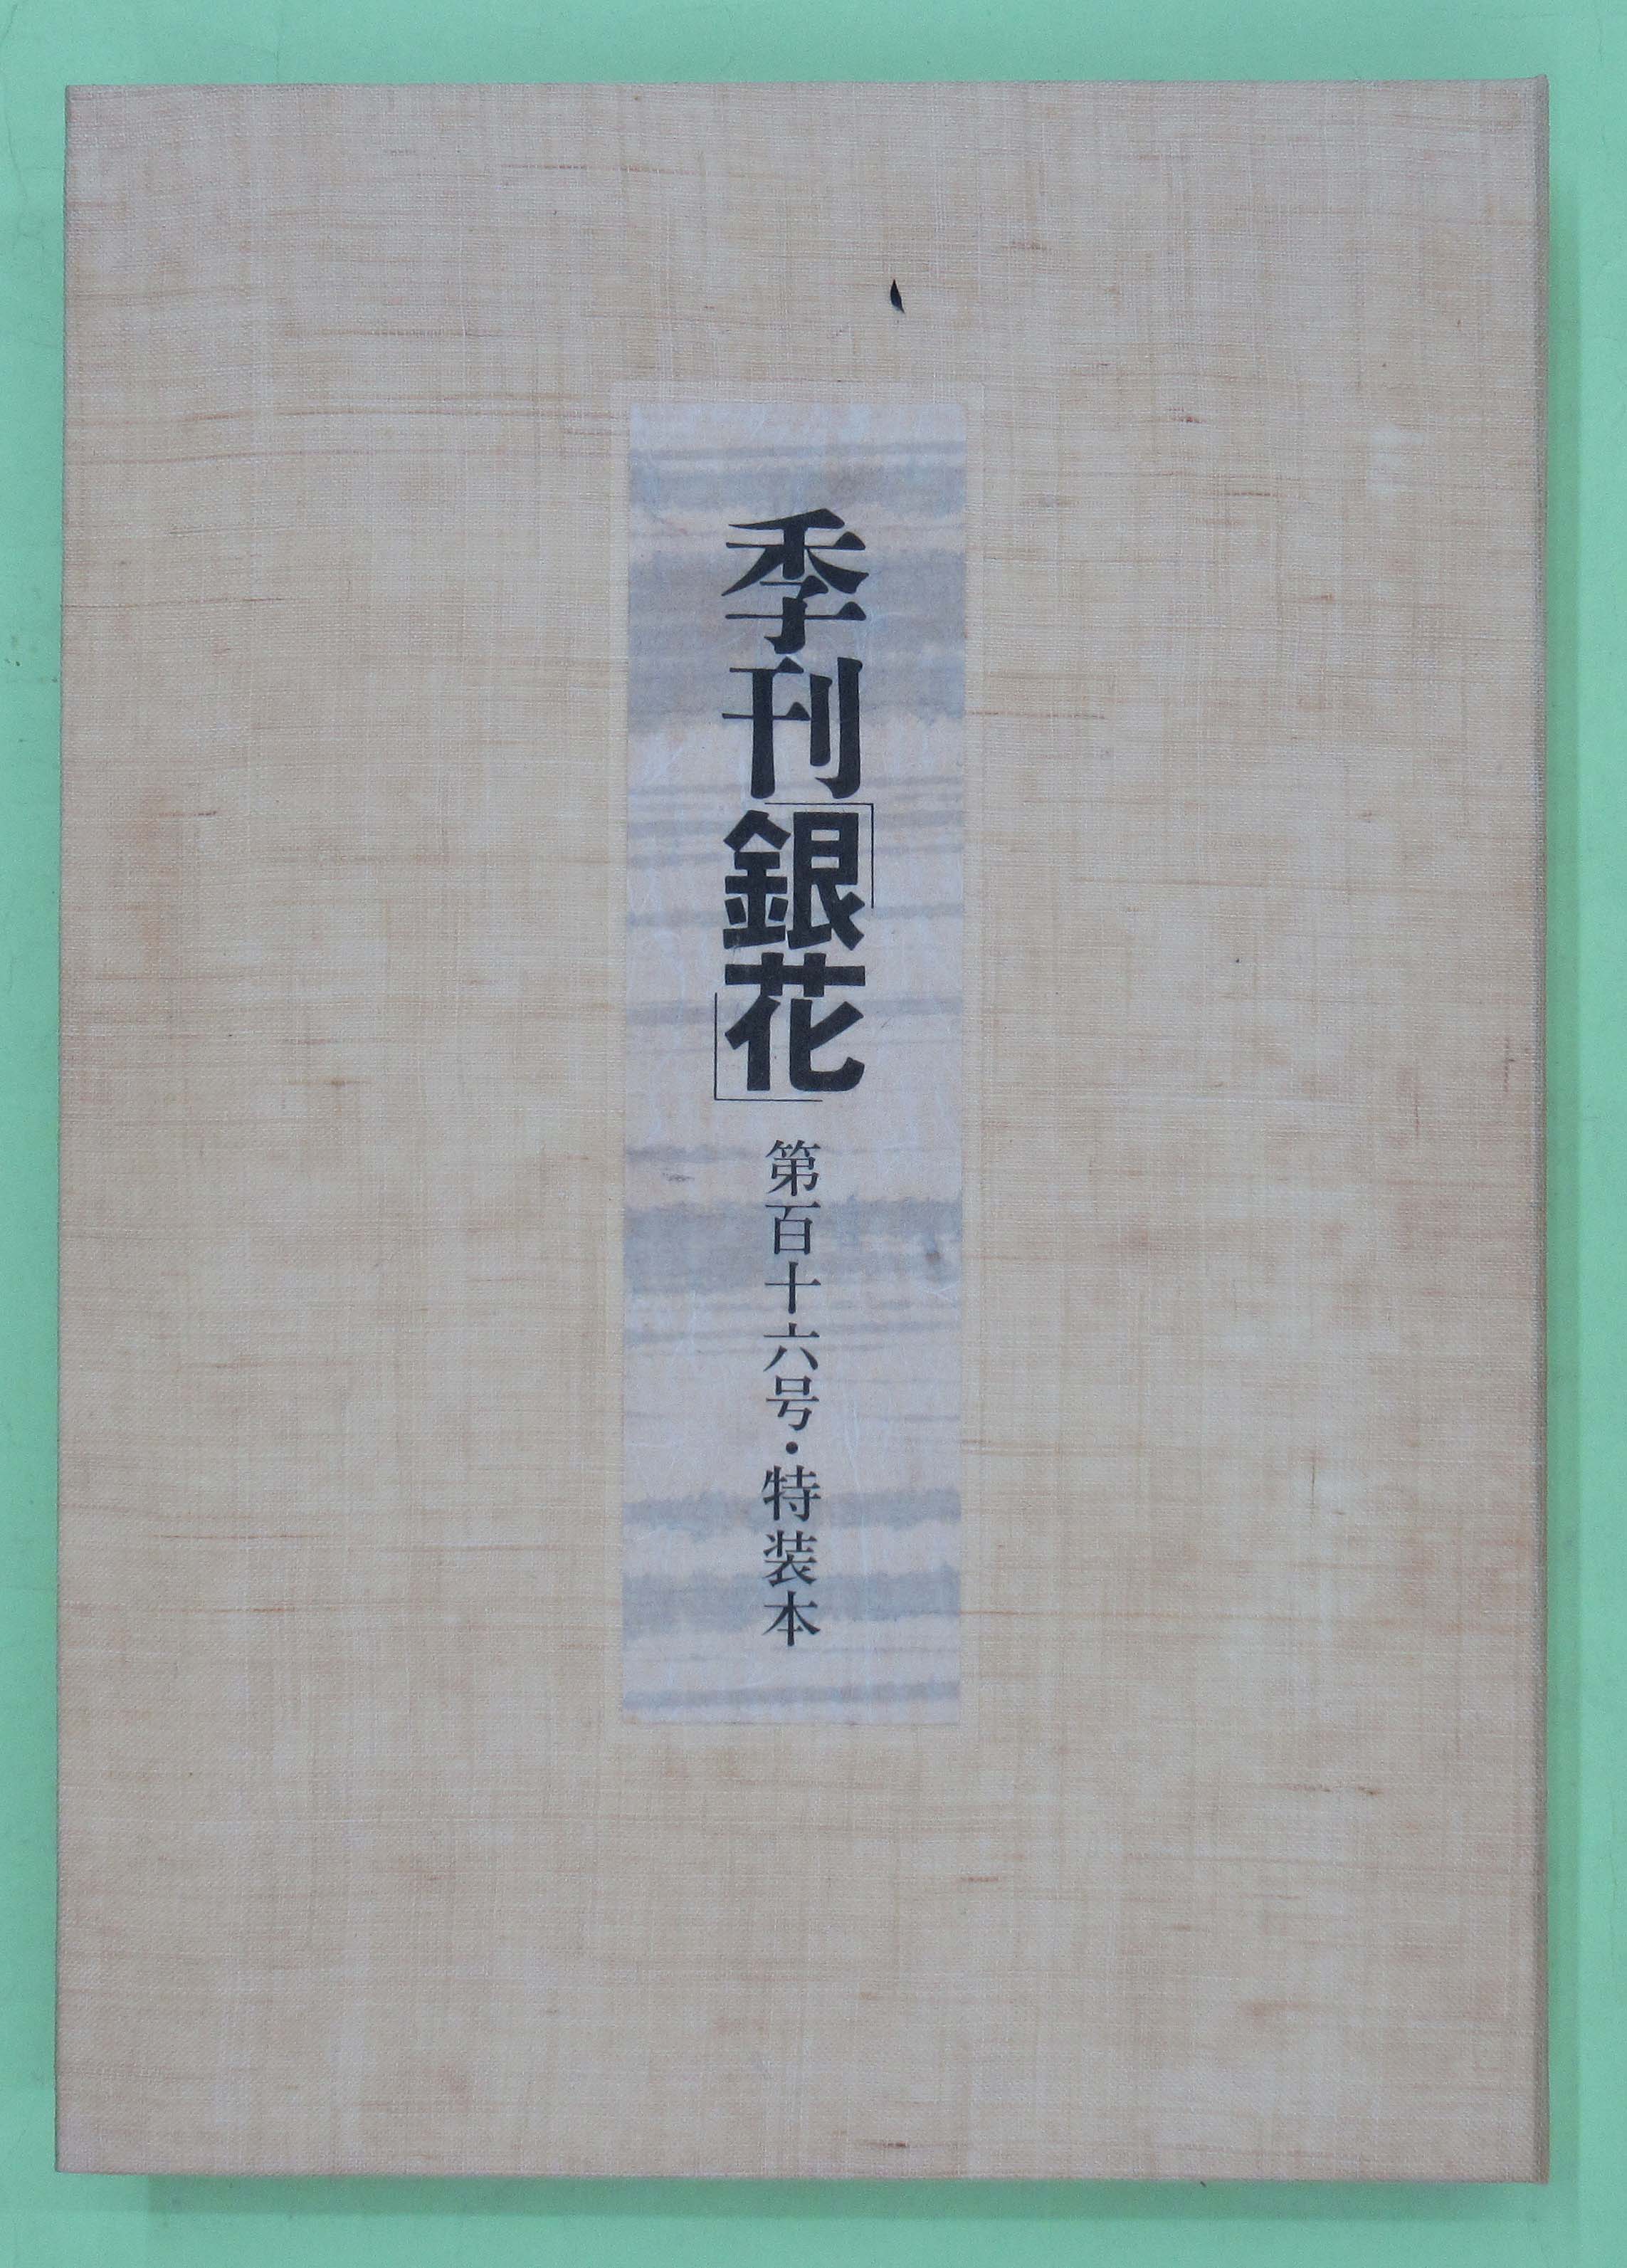 季刊「銀花」第百十六号・特装本